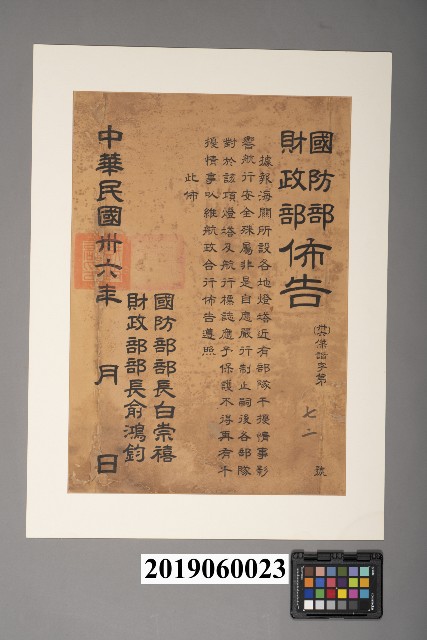 國防部
財政部
佈告
字第 七二 號
據報海關所設各地燈塔近有部隊干擾情事影
響航行安全殊屬非是自應嚴行制止嗣後各部隊
對於該項燈塔及航行標誌應予保護不得再有干
擾情事以維航政合行佈告遵照
此佈
國防部部長白崇禧
財政部部長俞鴻鈞
中華民國卅六年 月 日
2019060023